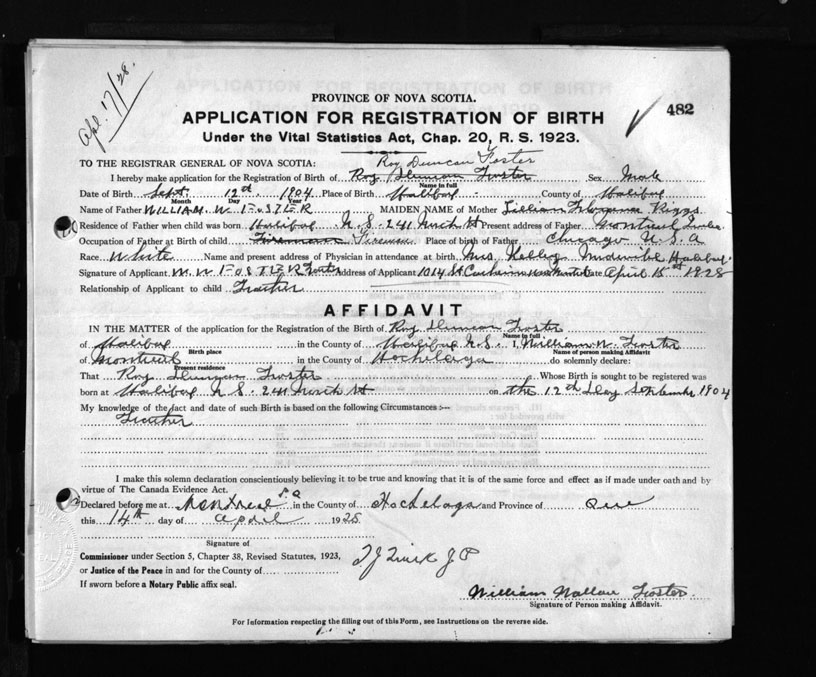 Apl. 17/28.
PROVINCE OF NOVA SCOTIA.
482
APPLICATION FOR REGISTRATION OF BIRTH
Under the Vital Statistics Act, Chap. 20, R. S. 1923.
Roy Duncan Foster
TO THE REGISTRAR GENERAL OF NOVA SCOTIA:
I hereby make application for the Registration of Birth of Roy Duncan Foster Sex Male
Name in full
Date of Birth Sept. 12th. 1904 Place of Birth Halifax County of Halifax
Month Day Year
Name of Father WILLIAM. W. FOSTER MAIDEN NAME of Mother Lillian Riggs
Residence of Father when child was born Halifax N.S. 241 North St Present address of Father Montreal
Occupation of Father at Birth of child Fireman Fireman Place of birth of Father Chicago U.S.A
Race White Name and present address of Physician in attendance at birth Mrs Kelley Midwife Halifax
Signature of Applicant W. W. FOSTER Foster Address of Applicant 1014 St Date April 15th 1928
Relationship of Applicant to child Father
AFFIDAVIT
IN THE MATTER of the application for the Registration of the Birth of Roy Duncan Foster
Name in full
of Halifax in the County of Halifax N.S. I, William W. Foster
Birth place Name of person making Affidavit
of Montreal in the County of Hochelaga do solemnly declare:
Present residence
That Roy Duncan Foster Whose Birth is sought to be registered was
born at Halifax N S. 241 North St on the 12th Day September 1904
My knowledge of the fact and date of such Birth is based on the following Circumstances :—
Father
I make this solemn declaration conscientiously believing it to be true and knowing that it is of the same force and effect as if made under oath and by
virtue of The Canada Evidence Act.
Declared before me at Montreal P.Q in the County of Hochelaga and Province of Que
this 14th day of April 1928
Signature of
Commissioner under Section 5, Chapter 38, Revised Statutes, 1923,
or Justice of the Peace in and for the County of
If sworn before a Notary Public affix seal.
T J Quirk J P
William Wallace Foster
Signature of Person making Affidavit.
For Information respecting the filling out of this Form, see Instructions on the reverse side.